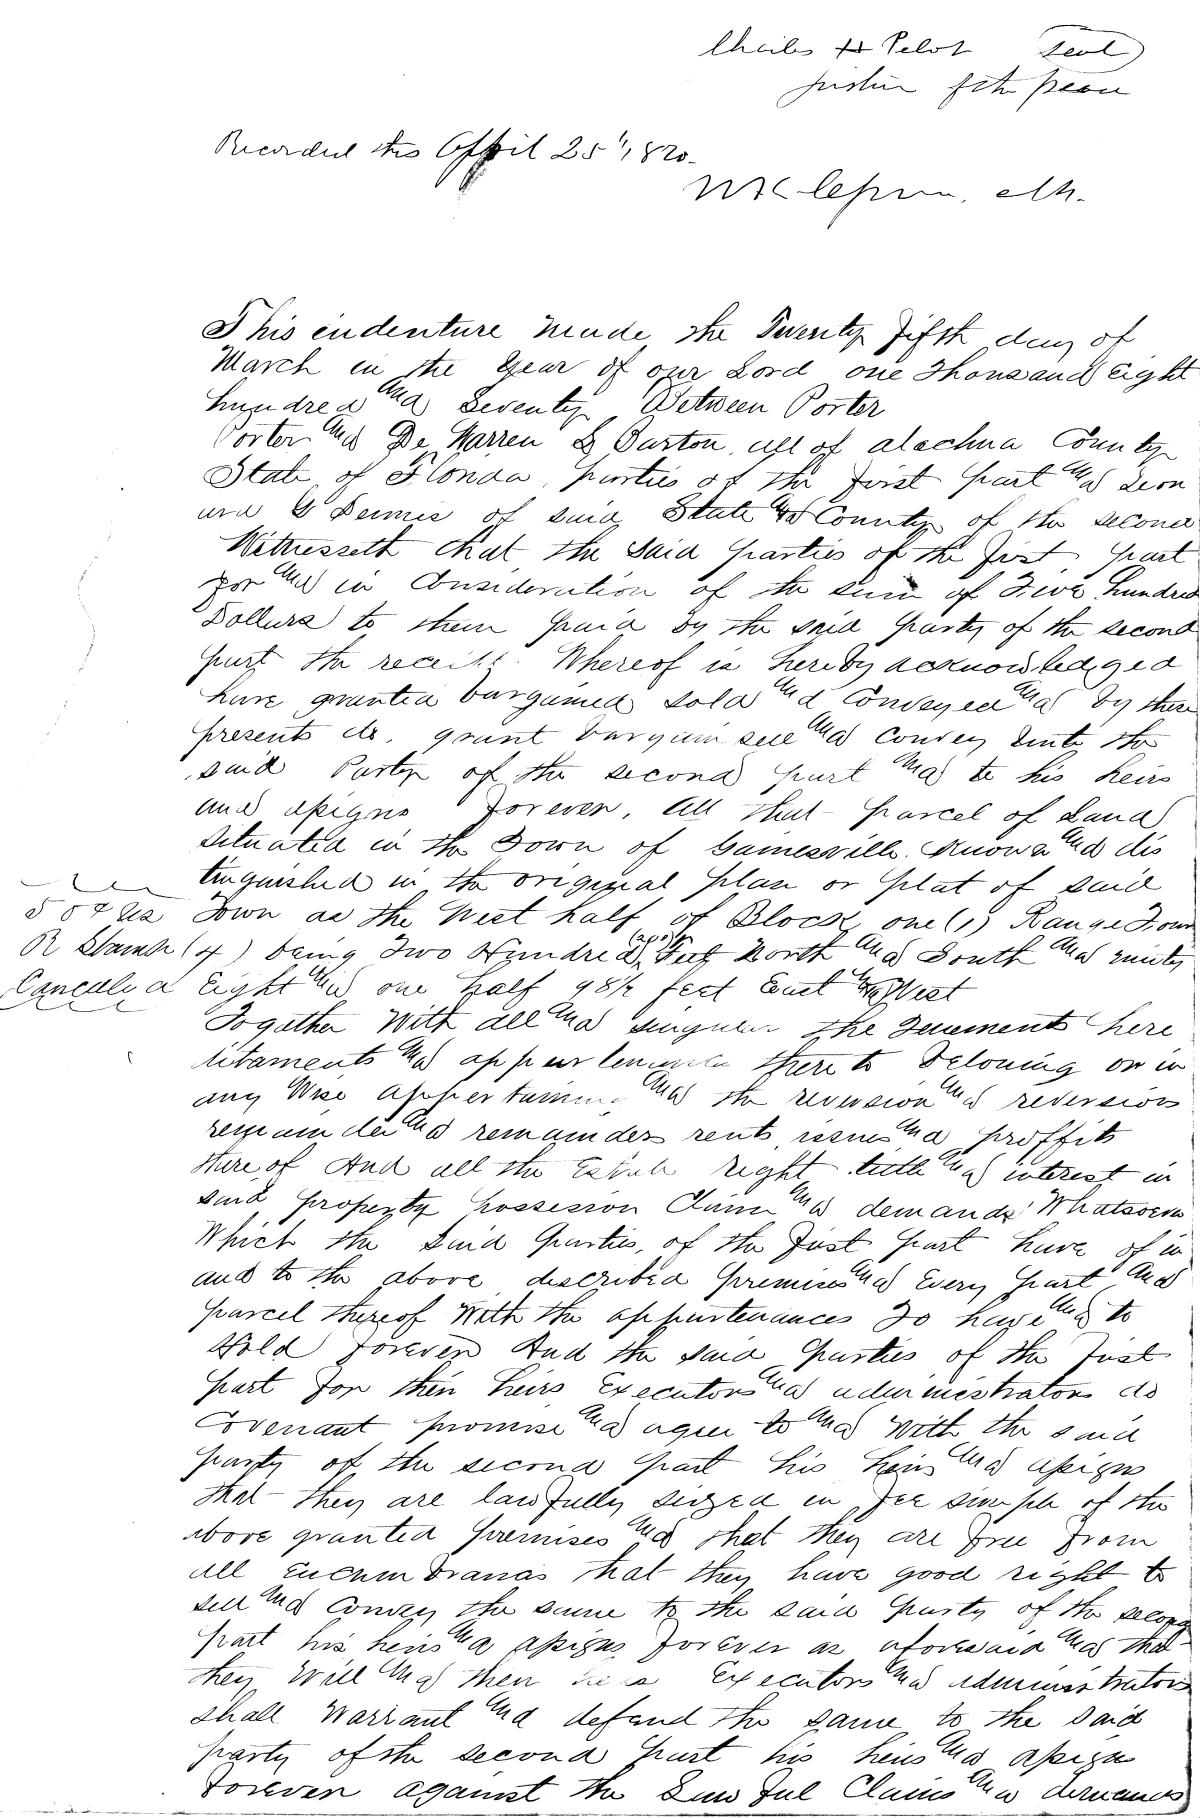 Charles H Pelot Seal
Justice of the peace
Recorded this April 25", 1870.
This indenture made the Twenty fifth day of
March in the year of our Lord one thousand Eight
hundred and Seventy Between Porter
Porter and De Warren L Barton all of alachua County
State of Florida, parties of the first part and Leon
ard G Dennis of said State and County of the second
Witnesseth that the said parties of the first part
for and in Consideration of the sum of Five hundred
Dollars to them paid by the said party of the second
part the receipt Whereof is hereby acknowledged
have granted bargained sold and Conveyed and by these
presents do, grant bargain sell and Convey Unto the
said Party of the second part and to his heirs
and assigns forever, all that parcel of Land
situated in the Town of Gainesville. Known and dis
tinguished in the original plan or plat of said
Town as the West half of Block one (1) Range Four
(4) being Two Hundred (200) Feet North and South and ninety
Eight and one half 98½ feet East and West
5 0
R Stamp
Canceled
Together With all and singular the Tenements here
ditaments and appurtenances there to Beloning or in
any Wise appertaining and the reversion and reversions
remainder and remainders rents, issues and proffits
there of And all the Estate right title and interest in
said property possession Claim and demands Whatsoever
Which the said parties, of the first part have of in
and to the above described premises and Every part and
parcel thereof With the appurtenances To have and to
Hold forever And the said parties of the first
part for their heirs Executors and administrators do
Covenant promise and agree to and With the said
party of the second part his heirs and assigns
that they are lawfully seized in fee simple of the
above granted premises and that they are free from
all Encumbrances that they have good right to
sell and Convey the same to the said party of the second
part his heirs and assigns forever as aforesaid and that
they Will and their heirs Executors and administrators
shall Warrant and defend the same to the said
party of the second part his heirs and assigns
forever against the Lawful Claims and demands